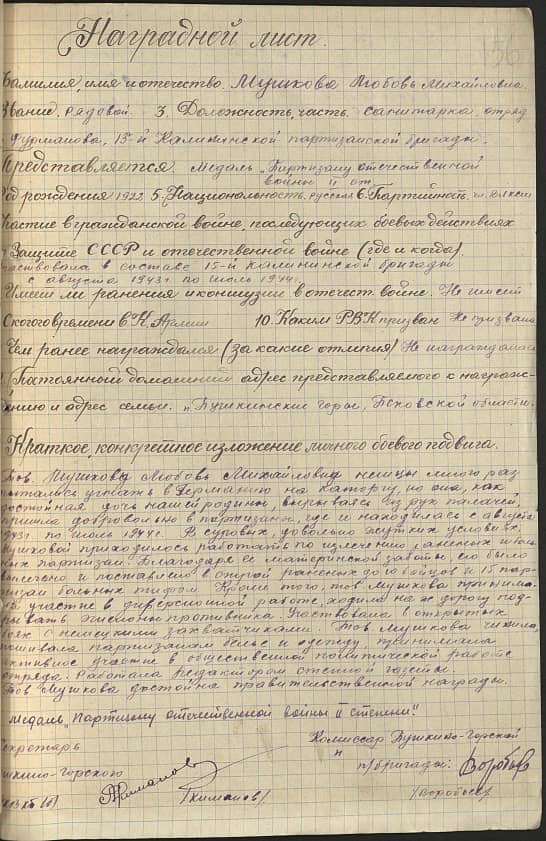 Наградной лист.
156
Фамилия, имя и отчество. Мушкова Любовь Михайловна.
Звание, рядовой. 3. Должность, часть. санитарка, отряд
Фурманова, 15-й Калининской партизанской бригады.
Представляется. Медаль "Партизану отечественной
войны II ст."
Год рождения 1922 5. Национальность. русская 6. Партийность.
Участие в гражданской войне, последующих боевых действиях
Защите СССР и отечественной войне (где и когда).
участвовала в составе 15-й Калининской бригады
с августа 1943 г. по июль 1944 г.
Имеет ли ранения и контузии в отечест. войне. Не имеет
С какого времени в К. Армии 10. Каким РВК призван Не призвана
Чем ранее награждался (за какие отличия) Не награждался
Постоянный домашний адрес представляемого к награж-
дению и адрес семьи. "Пушкинские горы, Псковской области.
Краткое, конкретное изложение личного боевого подвига.
Тов. Мушкову Любовь Михайловну немцы много раз
пытались угнать в Германию на каторгу, но она, как
достойная дочь нашей родины, вырываясь из рук палачей,
пришла добровольно в партизаны, где и находилась с августа
1943 г. по июль 1944 г. В суровых, довольно жутких условиях,
Мушковой приходилось работать по излечению раненых и боль-
ных партизан. Благодаря её материнской заботы, его было
вылечено и поставлено в строй раненых до 10 бойцов и 15 пар-
тизан больных тифом. Кроме того, тов. Мушкова принима-
ла участие в диверсионной работе, ходила на ж. дорогу под-
рывать эшелоны противника. Участвовала в открытых
боях с немецкими захватчиками. Тов. Мушкова чинила,
пошивала партизанам белье и одежду, принимала
активное участие в общественной политической работе
отряда. Работала редактором стенной газеты.
Тов. Мушкова достойна правительственной награды.
Медаль "Партизану отечественной войны II степени".
Секретарь Комиссар Пушкино-Горской
Пушкино-Горского п/бригады: Воробьев
РК ВКП(б) /Воробьев/